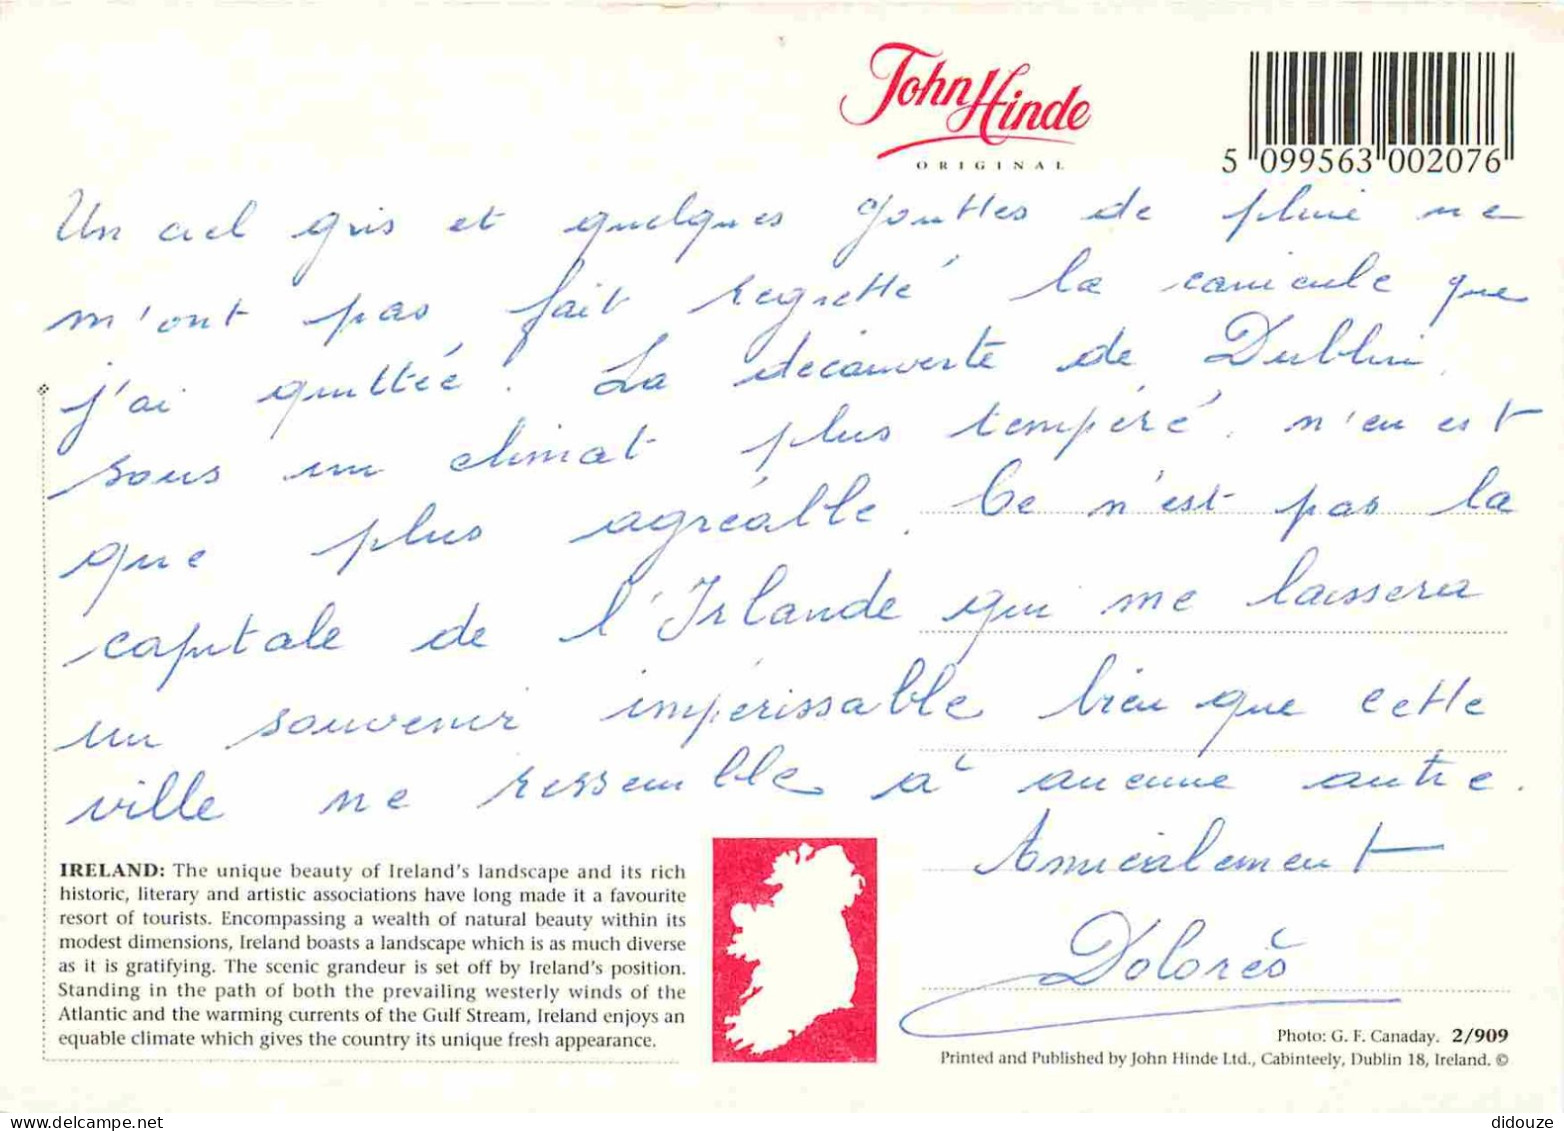 John Hinde
ORIGINAL
5 099563 002076
Un ciel gris et quelques gouttes de pluie ne
m'ont pas fait regretté la canicule que
j'ai quittée. La découverte de Dublin,
sous un climat plus tempéré, n'en est
que plus agréable. Ce n'est pas la
capitale de l'Irlande qui me laissera
un souvenir impérissable bien que cette
ville ne ressemble à aucune autre.
Amicalement
Dolorès
IRELAND: The unique beauty of Ireland's landscape and its rich
historic, literary and artistic associations have long made it a favourite
resort of tourists. Encompassing a wealth of natural beauty within its
modest dimensions, Ireland boasts a landscape which is as much diverse
as it is gratifying. The scenic grandeur is set off by Ireland's position.
Standing in the path of both the prevailing westerly winds of the
Atlantic and the warming currents of the Gulf Stream, Ireland enjoys an
equable climate which gives the country its unique fresh appearance.
Photo: G. F. Canaday. 2/909
Printed and Published by John Hinde Ltd., Cabinteely, Dublin 18, Ireland. ©
didouze